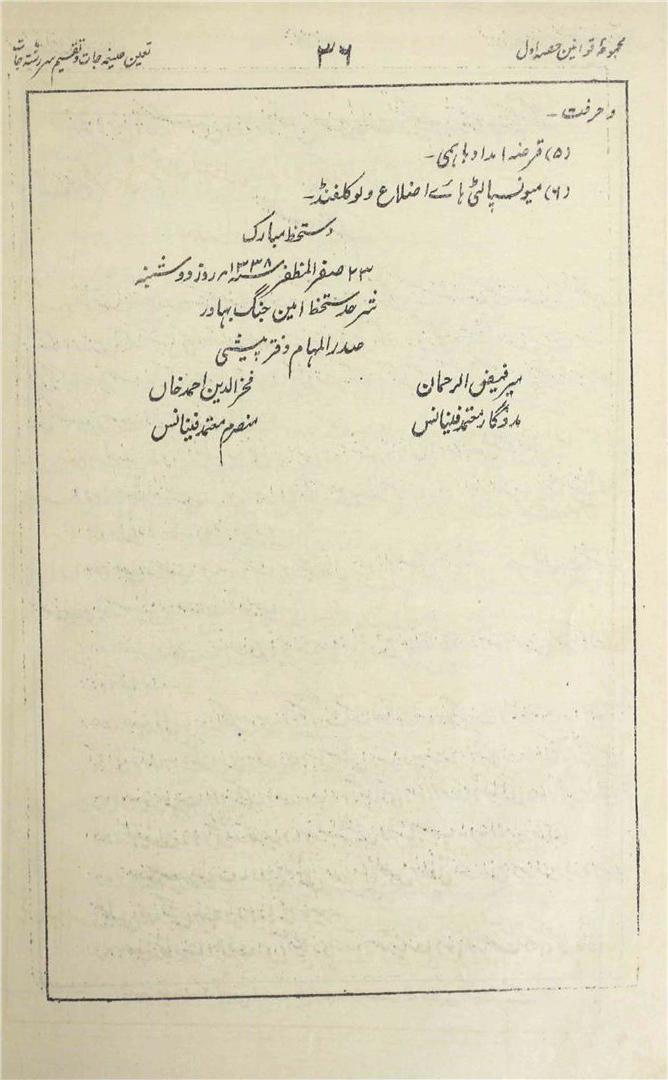 مجموعۂ قوانین حصہ اول
۳۶
تعین صیغہ جات و تقسیم سررشتہ جات
و حرفت۔
(۵) قرضہ امداد باہمی۔
(۶) میونسپالٹی ہائے اضلاع و لوکلفنڈ۔
دستخط مبارک
۲۳ صفر المظفر سنہ ۱۳۳۸ھ روز دوشنبہ
شرحدستخط امین جنگ بہادر
صدر المہام دفتر پیشی
میر فیض الرحمان
مددگار معتمد فینانس
فخر الدین احمد خاں
منصرم معتمد فینانس